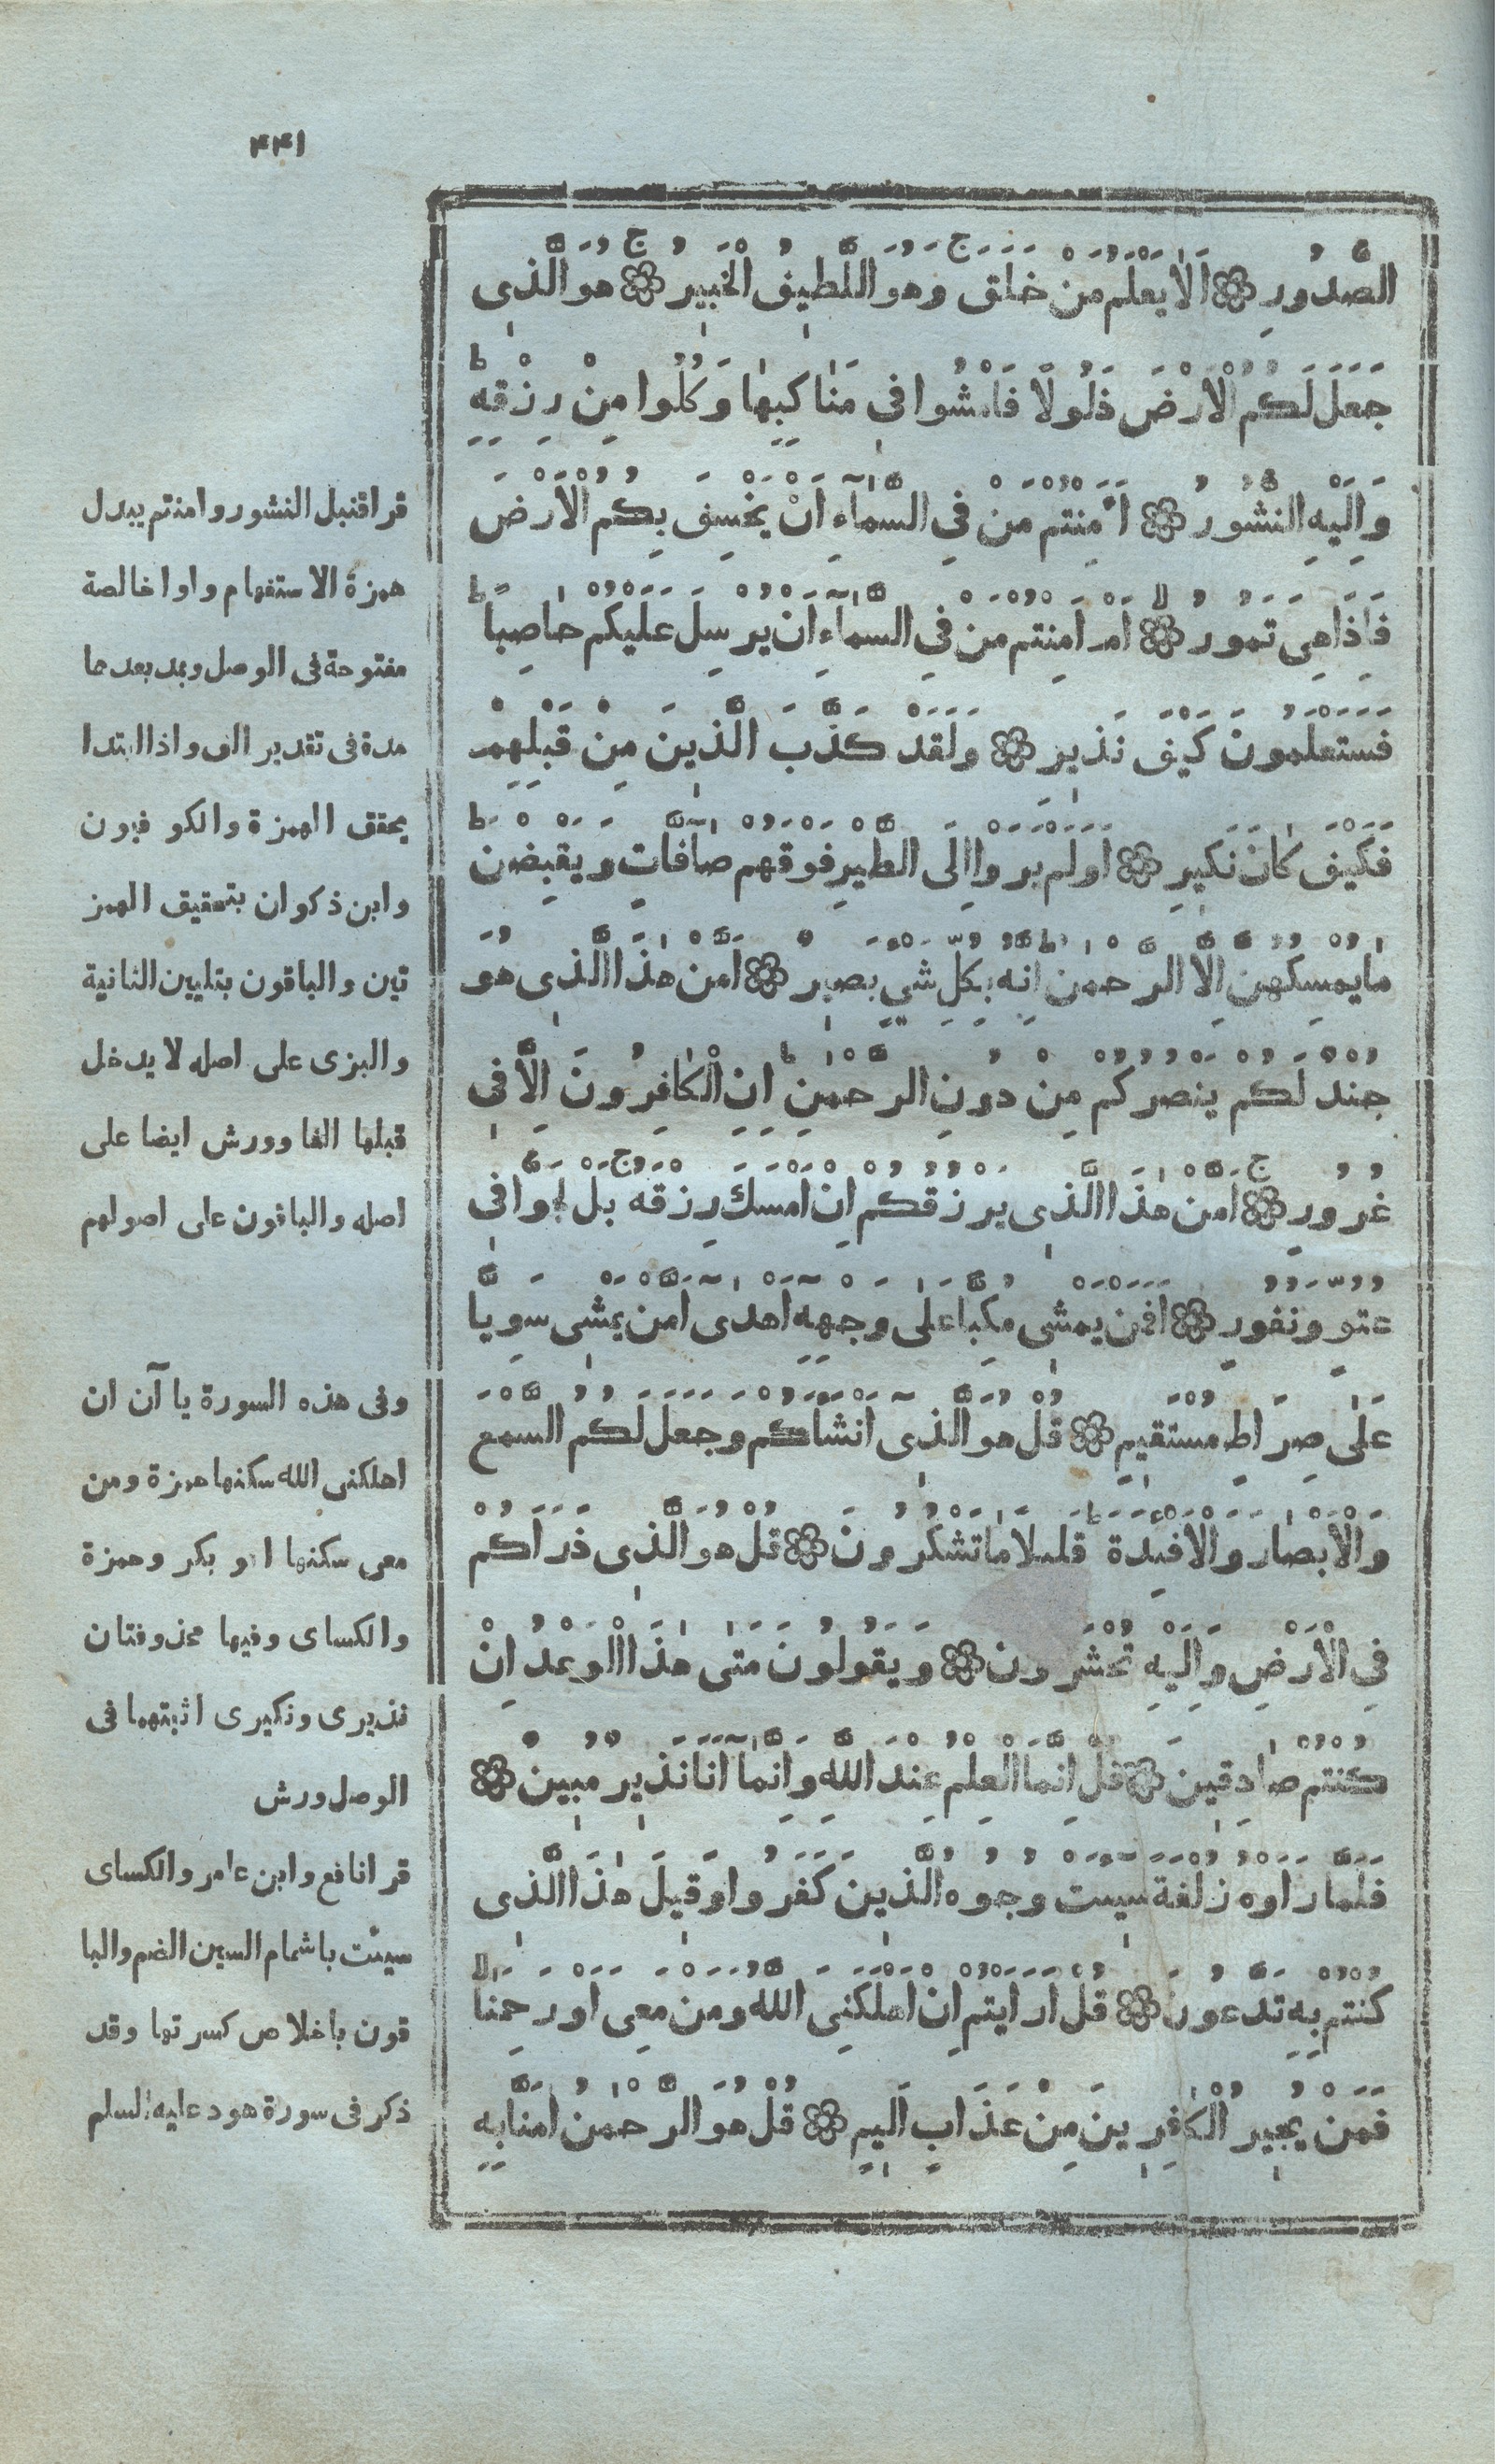 ۴۴۱
الصُّدُورِ ۞ اَلَا يَعْلَمُ مَنْ خَلَقَ ج وَهُوَ اللَّطِيفُ الْخَبِيرُ ج ۞ هُوَ الَّذِى
جَعَلَ لَكُمُ الْاَرْضَ ذَلُولًا فَامْشُوا فِى مَنَاكِبِهَا وَكُلُوا مِنْ رِزْقِهِ ط
وَاِلَيْهِ النُّشُورُ ۞ ءَاَمِنْتُمْ مَنْ فِى السَّمَآءِ اَنْ يَخْسِفَ بِكُمُ الْاَرْضَ
فَاِذَا هِىَ تَمُورُ لا ۞ اَمْ اَمِنْتُمْ مَنْ فِى السَّمَآءِ اَنْ يُرْسِلَ عَلَيْكُمْ حَاصِبًا ط
فَسَتَعْلَمُونَ كَيْفَ نَذِيرِ ۞ وَلَقَدْ كَذَّبَ الَّذِينَ مِنْ قَبْلِهِمْ
فَكَيْفَ كَانَ نَكِيرِ ۞ اَوَلَمْ يَرَوْا اِلَى الطَّيْرِ فَوْقَهُمْ صَآفَّاتٍ وَيَقْبِضْنَ ط
مَا يُمْسِكُهُنَّ اِلَّا الرَّحْمٰنُ ط اِنَّهُ بِكُلِّ شَىْءٍ بَصِيرٌ ۞ اَمَّنْ هٰذَا الَّذِى هُوَ
جُنْدٌ لَكُمْ يَنْصُرُكُمْ مِنْ دُونِ الرَّحْمٰنِ ط اِنِ الْكَافِرُونَ اِلَّا فِى
غُرُورٍ ج ۞ اَمَّنْ هٰذَا الَّذِى يَرْزُقُكُمْ اِنْ اَمْسَكَ رِزْقَهُ ج بَلْ لَجُّوا فِى
عُتُوٍّ وَنُفُورٍ ۞ اَفَمَنْ يَمْشِى مُكِبًّا عَلَى وَجْهِهِ اَهْدٰٓى اَمَّنْ يَمْشِى سَوِيًّا
عَلٰى صِرَاطٍ مُسْتَقِيمٍ ۞ قُلْ هُوَ الَّذِىٓ اَنْشَاَكُمْ وَجَعَلَ لَكُمُ السَّمْعَ
وَالْاَبْصَارَ وَالْاَفْئِدَةَ ط قَلِيلًا مَا تَشْكُرُونَ ۞ قُلْ هُوَ الَّذِى ذَرَاَكُمْ
فِى الْاَرْضِ وَاِلَيْهِ تُحْشَرُونَ ۞ وَيَقُولُونَ مَتٰى هٰذَا الْوَعْدُ اِنْ
كُنْتُمْ صَادِقِينَ ۞ قُلْ اِنَّمَا الْعِلْمُ عِنْدَ اللَّهِ وَاِنَّمَآ اَنَا نَذِيرٌ مُبِينٌ ۞
فَلَمَّا رَاَوْهُ زُلْفَةً سِيٓئَتْ وُجُوهُ الَّذِينَ كَفَرُوا وَقِيلَ هٰذَا الَّذِى
كُنْتُمْ بِهِ تَدَّعُونَ ۞ قُلْ اَرَاَيْتُمْ اِنْ اَهْلَكَنِىَ اللَّهُ وَمَنْ مَعِىَ اَوْ رَحِمَنَا لا
فَمَنْ يُجِيرُ الْكَافِرِينَ مِنْ عَذَابٍ اَلِيمٍ ۞ قُلْ هُوَ الرَّحْمٰنُ اٰمَنَّا بِهِ
قرا قنبل النشور وامنتم يبدل
همزة الاستفهام واوا خالصة
مفتوحة فى الوصل ويمد بعدها
مدة فى تقدير الف واذا ابتدا
يحقق الهمزة والكوفيون
وابن ذكوان بتحقيق الهمز
تين والباقون بتليين الثانية
والبزى على اصله لا يدخل
قبلها الفا وورش ايضا على
اصله والباقون على اصولهم
وفى هذه السورة ياآن ان
اهلكنى الله سكنها حمزة ومن
معى سكنها ابو بكر وحمزة
والكساى وفيها محذوفتان
نذيرى ونكيرى اثبتهما فى
الوصل ورش
قرا نافع وابن عامر والكساى
سيئت باشمام السين الضم والبا
قون باخلاص كسرتها وقد
ذكر فى سورة هود عليه السلم